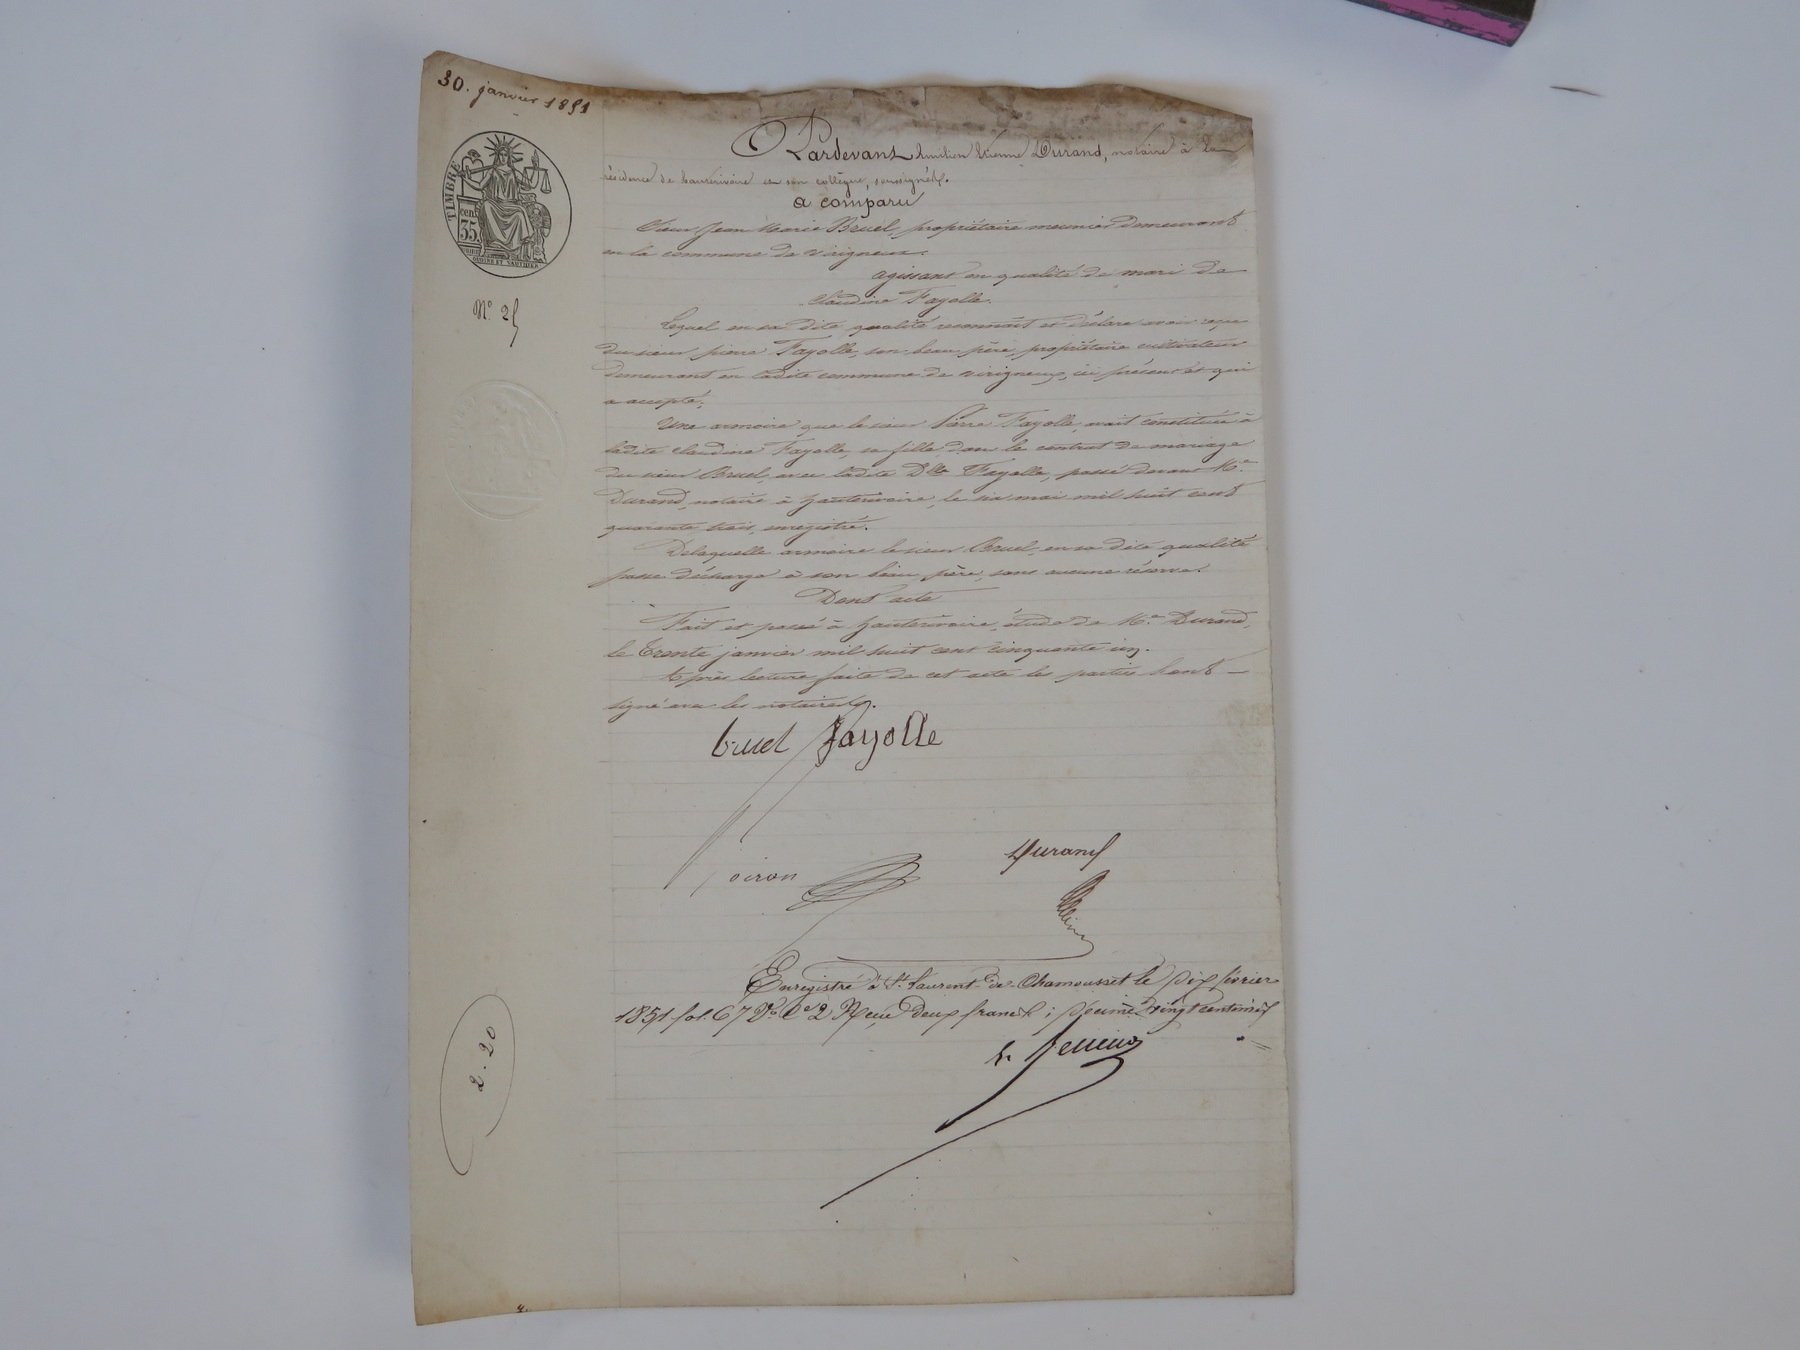 30. janvier 1851
TIMBRE
cent
35.
N° 25
Pardevant Emilien Etienne Durand, notaire à la
résidence de hauterivoire et son collègue, soussignés.
a comparu
Sieur Jean Marie Bruel, propriétaire meunier demeurant
en la commune de virigneux.
agissant en qualité de mari de
Claudine Fayolle.
Lequel en sa dite qualité reconnait et déclare avoir reçu
du sieur pierre Fayolle, son beau père, propriétaire cultivateur
demeurant en ladite commune de virigneux, ici présent et qui
a accepté,
Une armoire que le sieur Pierre Fayolle, avait constituée à
ladite claudine Fayolle, sa fille dans le contrat de mariage
du sieur Bruel, avec ladite Dlle Fayolle, passé devant Me
Durand, notaire à hauterivoire, le six mai mil huit cent
quarante trois, enregistré.
Delaquelle armoire le sieur Bruel, en sa dite qualité
passe décharge à son beau père, sans aucune réserve.
Dont acte
Fait et passé à hauterivoire, étude de Me Durand,
le trente janvier mil huit cent cinquante un.
Après lecture faite de cet acte les parties l'ont
signé avec les notaires.
bruel fayolle
Durand
Enregistré à St Laurent de Chamousset le dix février
1851 fol. 67 Vo Ce 2 Reçu deux francs ; décime vingt centimes
2.20